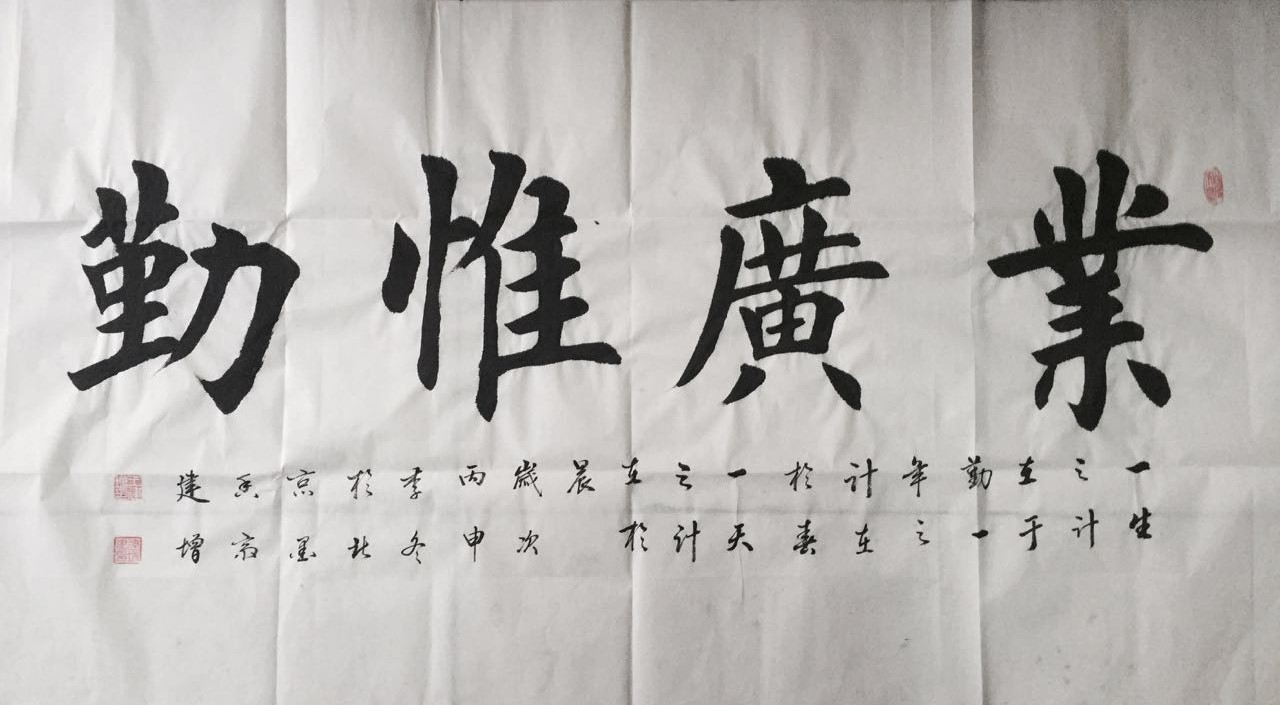 業廣惟勤
一生
之計
在于
勤一
年之
計在
於春
一天
之計
在於
晨
歲次
丙申
季冬
於北
京墨
香齋
建增